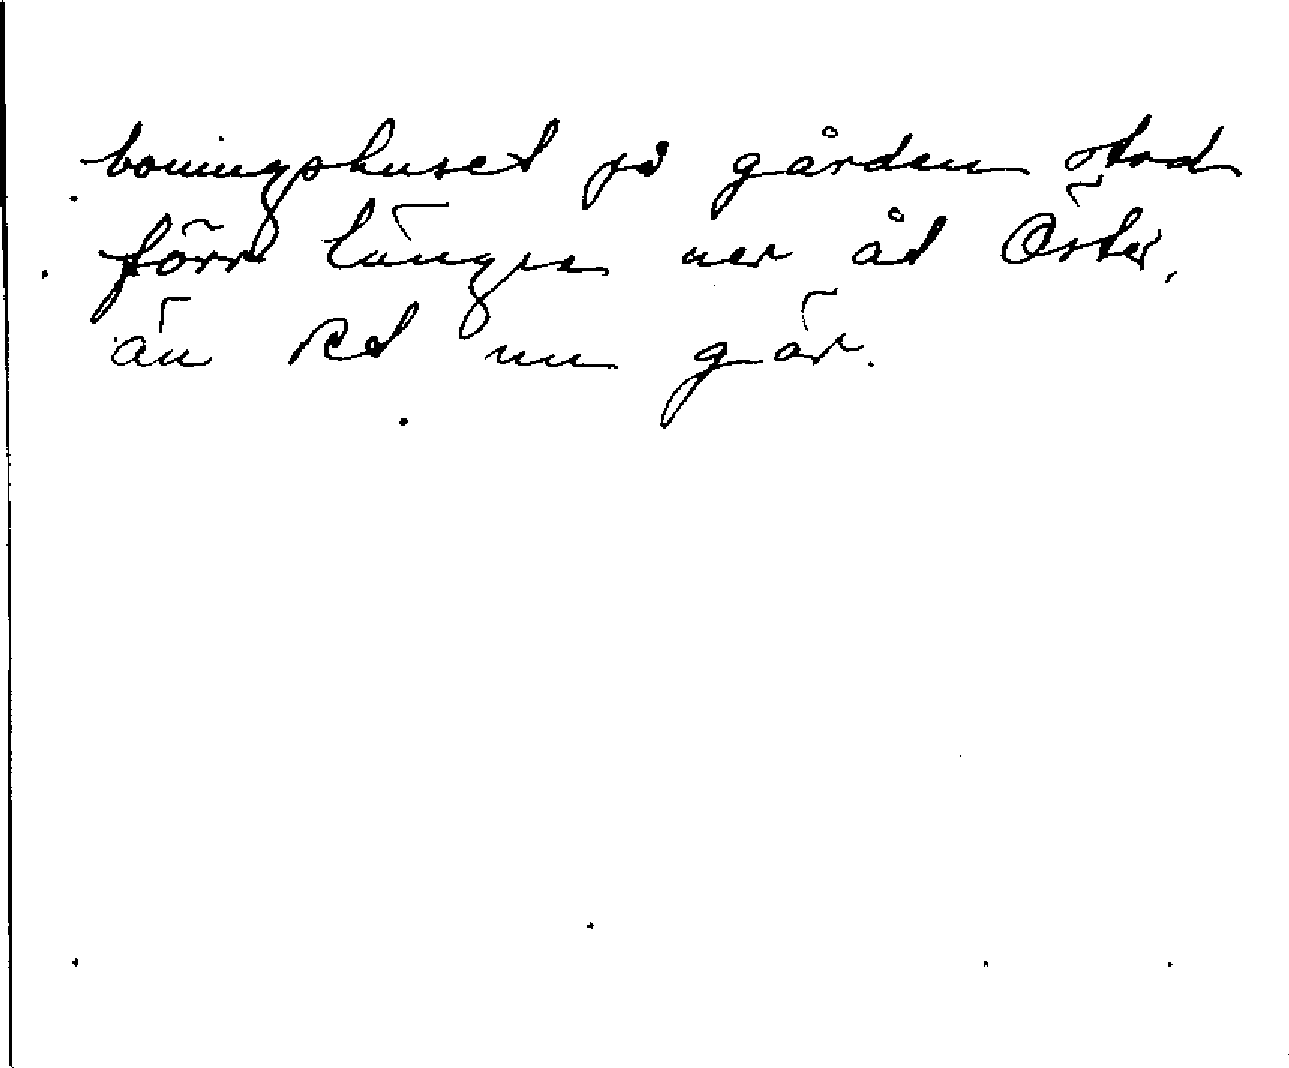 boningshuset på gården stod
förr längre ner åt Öster,
än det nu gör.